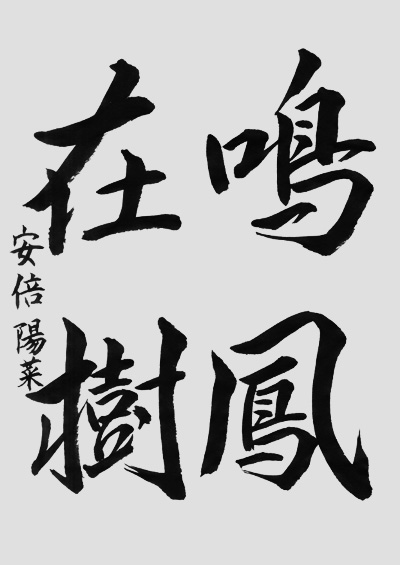 鳴鳳
在樹
安倍陽菜